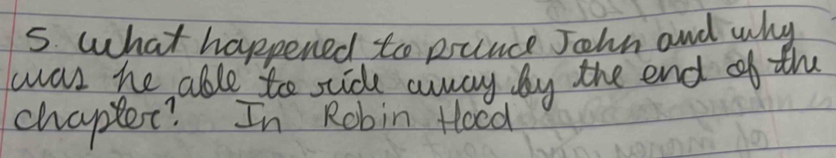 5. What happened to prince John and why
was he able to ride away by the end of the
chapter? In Robin Hood